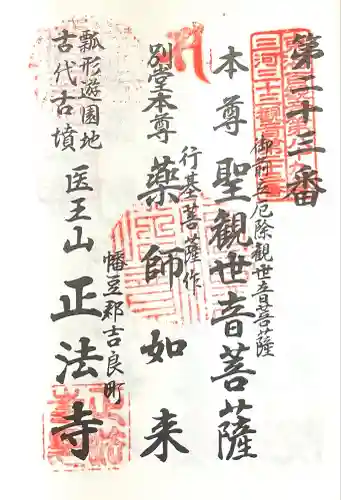 第三十三番
本尊 聖觀世音菩薩
御前立厄除観世音菩薩
別堂本尊 薬師如来
行基菩薩作
瓢形遊園地
古代古墳
医王山 正法寺
幡豆郡吉良町